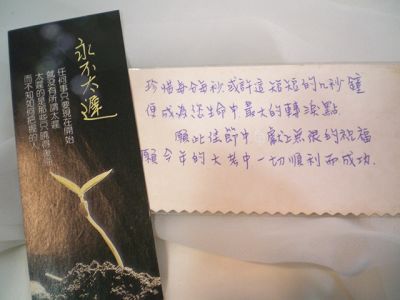 永不太遲
任何事只要現在開始
就沒有所謂太遲
太遲的是那些只懂得
而不知如何把握的
珍惜每分每秒 或許這短短的几秒鐘
便成為您生命中最大的轉淚點
願此佳節中 獻上無限的祝福
願今年的大考中一切順利而成功.